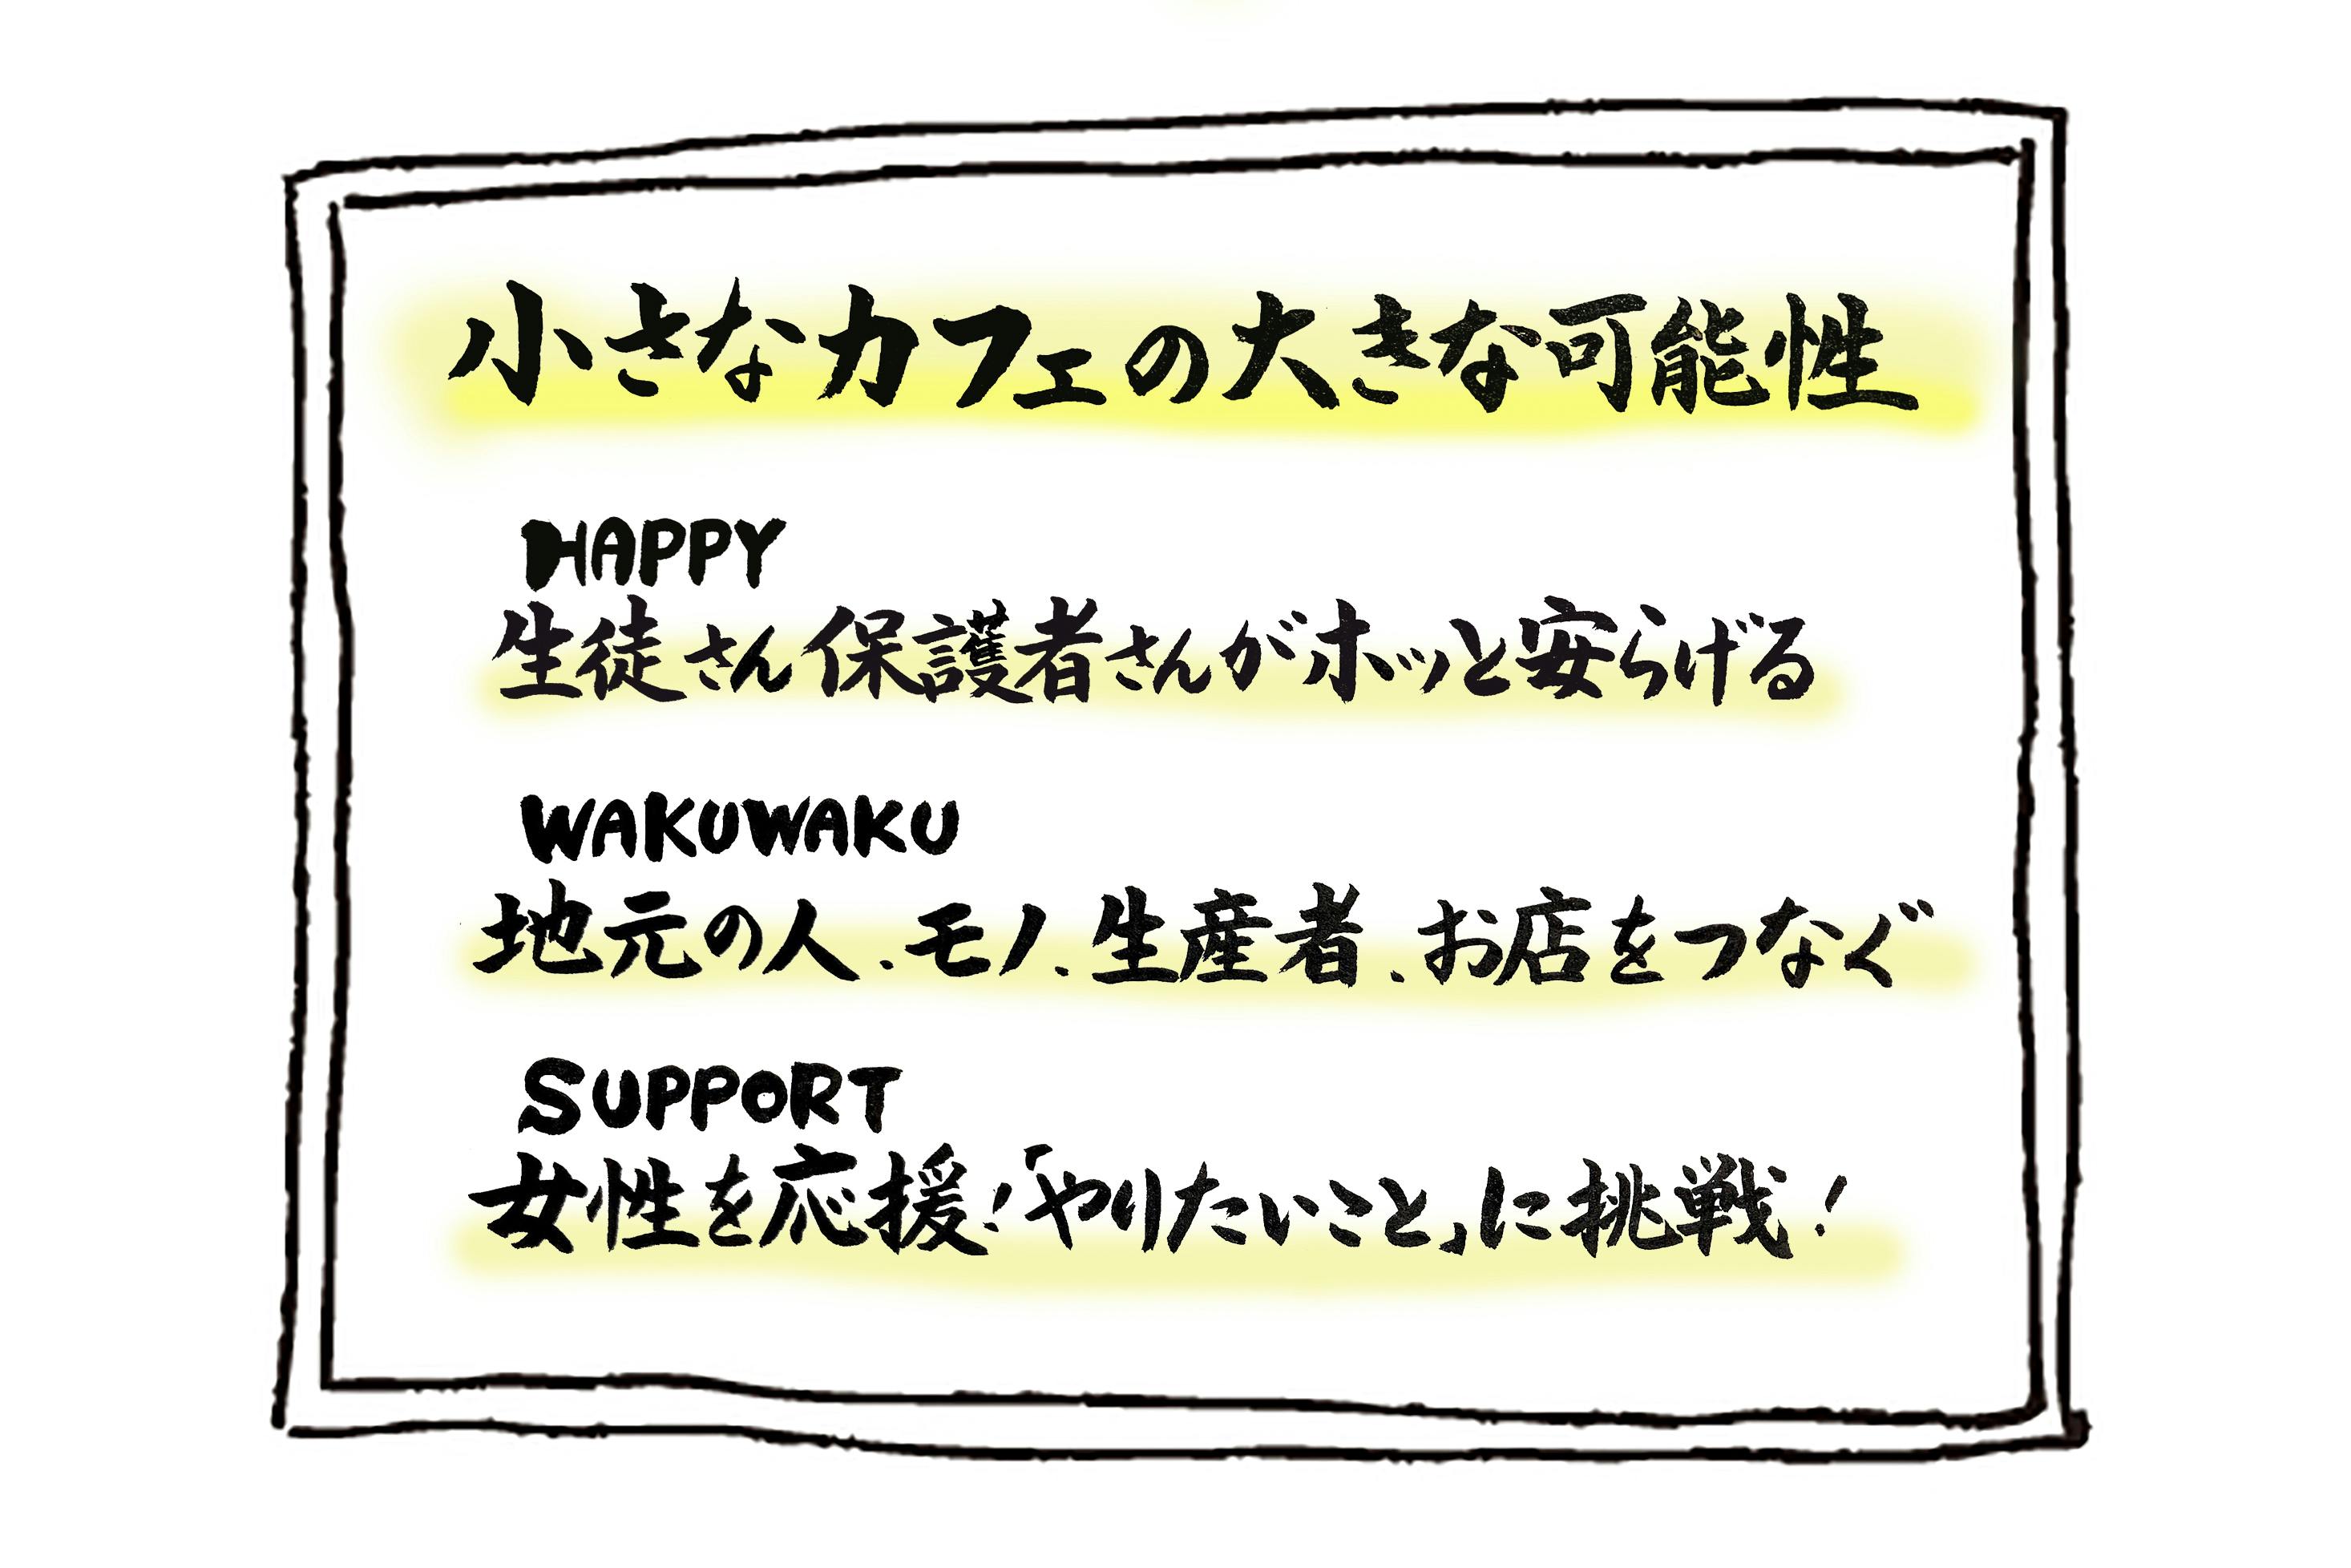 小さなカフェの大きな可能性
HAPPY
生徒さん保護者さんがホッと安らげる
WAKUWAKU
地元の人、モノ、生産者、お店をつなぐ
SUPPORT
女性を応援!「やりたいこと」に挑戦!